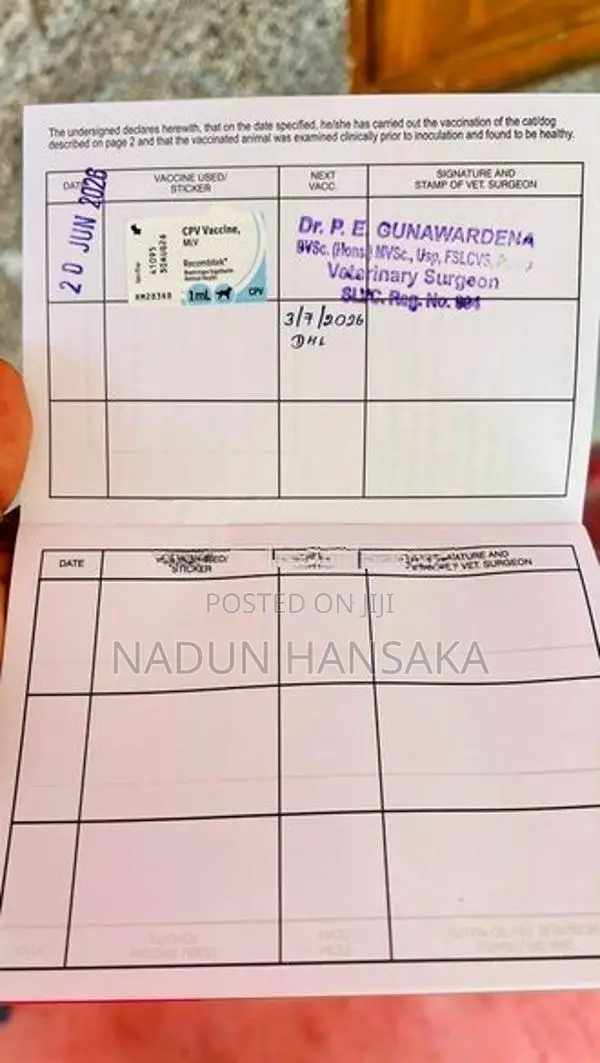 The undersigned declares herewith, that on the date specified, he/she has carried out the vaccination of the cat/dog
described on page 2 and that the vaccinated animal was examined clinically prior to inoculation and found to be healthy.
DATE
VACCINE USED/
STICKER
NEXT
VACC.
SIGNATURE AND
STAMP OF VET. SURGEON
20 JUN 2026
CPV Vaccine,
MLV
Recombitek
Boehringer Ingelheim
Animal Health
1mL
CPV
41095
30AUG26
Dr. P. E. GUNAWARDENA
BVSc. (Hons) MVSc.,
FSLCVS,
Veterinary Surgeon
SLVC. Reg. No.
3/7/2026
DHL
DATE
USED/
STICKER
AND
VET. SURGEON
POSTED ON JIJI
NADUN HANSAKA